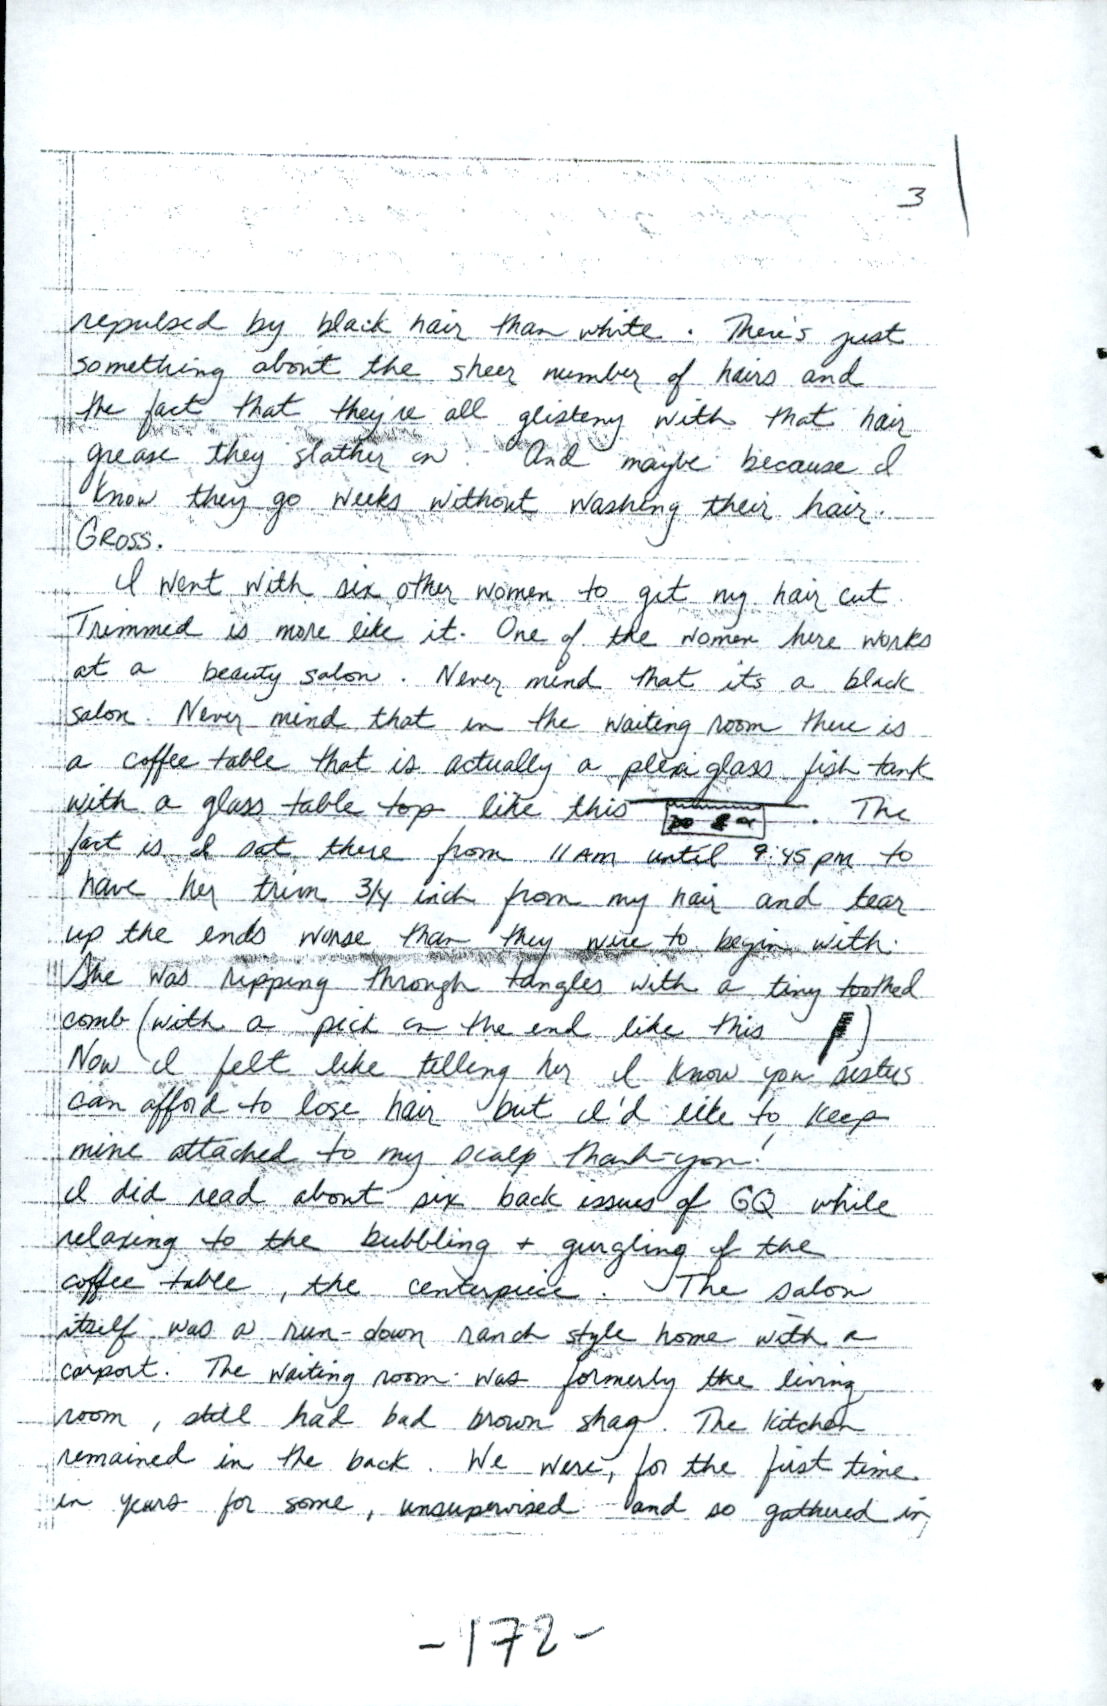 3
repulsed by black hair than white. There's just
something about the sheer number of hairs and
the fact that they're all glisteny with that hair
grease they slather on. And maybe because I
know they go weeks without washing their hair.
GROSS.
I went with six other women to get my hair cut.
Trimmed is more like it. One of the women here works
at a beauty salon. Never mind that its a black
salon. Never mind that in the waiting room there is
a coffee table that is actually a plexiglass fish tank
with a glass table top like this. The
fact is I sat there from 11 AM until 9:45 pm to
have her trim 3/4 inch from my hair and tear
up the ends worse than they were to begin with.
She was ripping through tangles with a tiny toothed
comb (with a pick on the end like this )
Now I felt like telling her I know you sisters
can afford to lose hair but I'd like to keep
mine attached to my scalp thank-you!
I did read about six back issues of GQ while
relaxing to the bubbling + gurgling of the
coffee table, the centerpiece. The salon
itself was a run-down ranch style home with a
carport. The waiting room was formerly the living
room, still had bad brown shag. The kitchen
remained in the back. We were, for the first time
in years for some, unsupervised and so gathered in
-172-